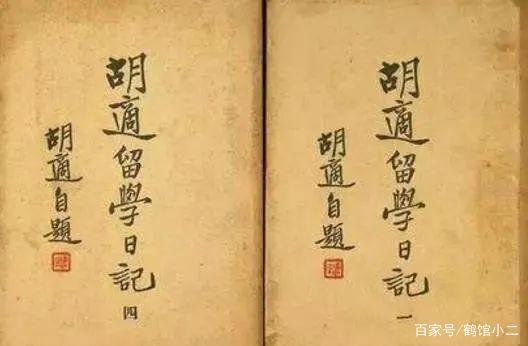 胡適留學日記
胡適自題
四
胡適留學日記
胡適自題
一
百家号/鹤馆小二